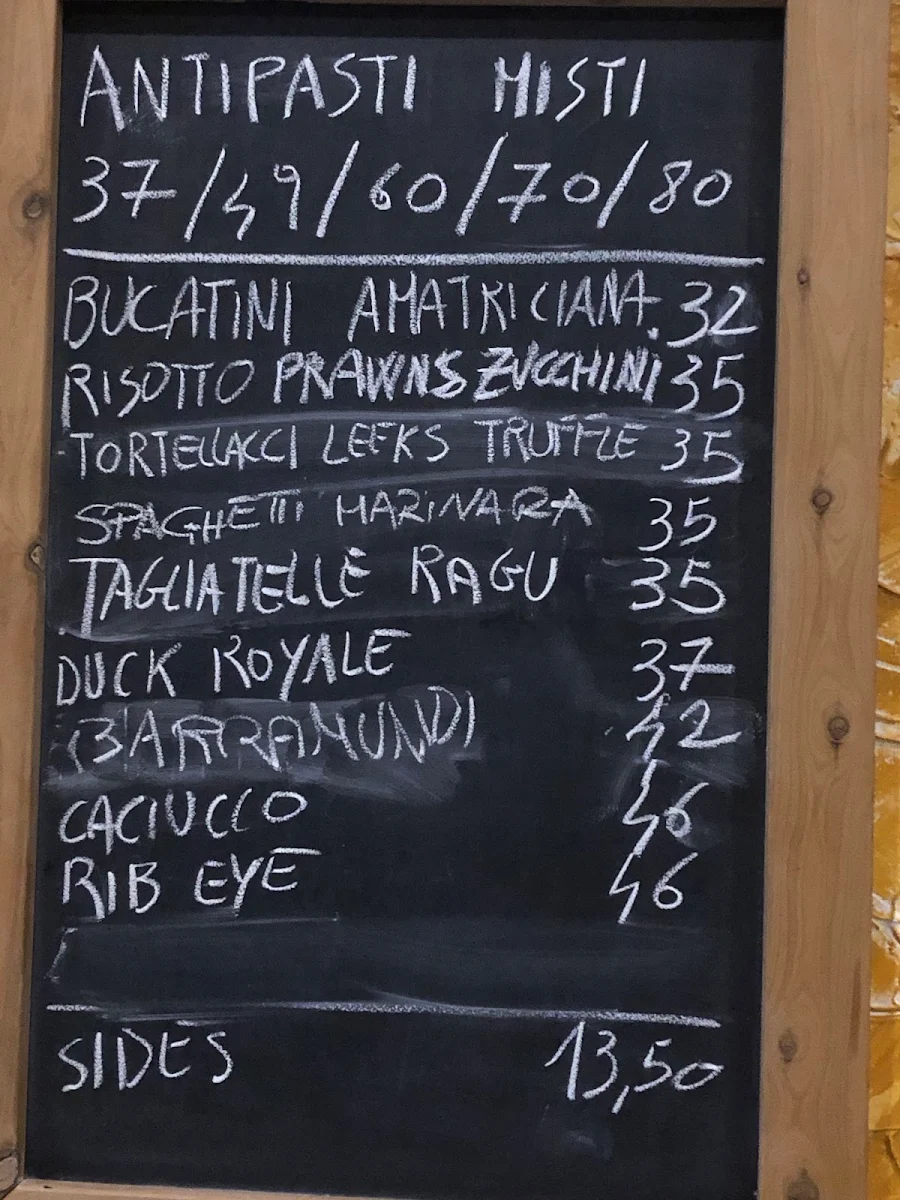 ANTIPASTI MISTI
37/49/60/70/80
BUCATINI AMATRICIANA. 32
RISOTTO PRAWNS ZUCCHINI 35
TORTELLACCI LEEKS TRUFFLE 35
SPAGHETTI MARINARA 35
TAGLIATELLE RAGU 35
DUCK ROYALE 37
BARRAMUNDI 42
CACIUCCO 46
RIB EYE 46
SIDES 13,50